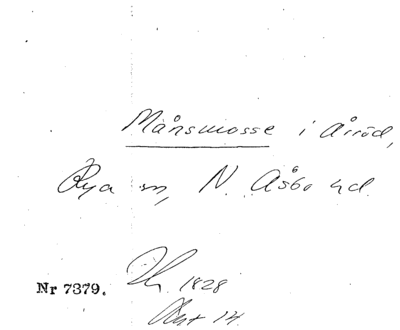 Månsmosse i Årröd,
Rya sn, N. Åsbo hd.
Nr 7379. 1828
14